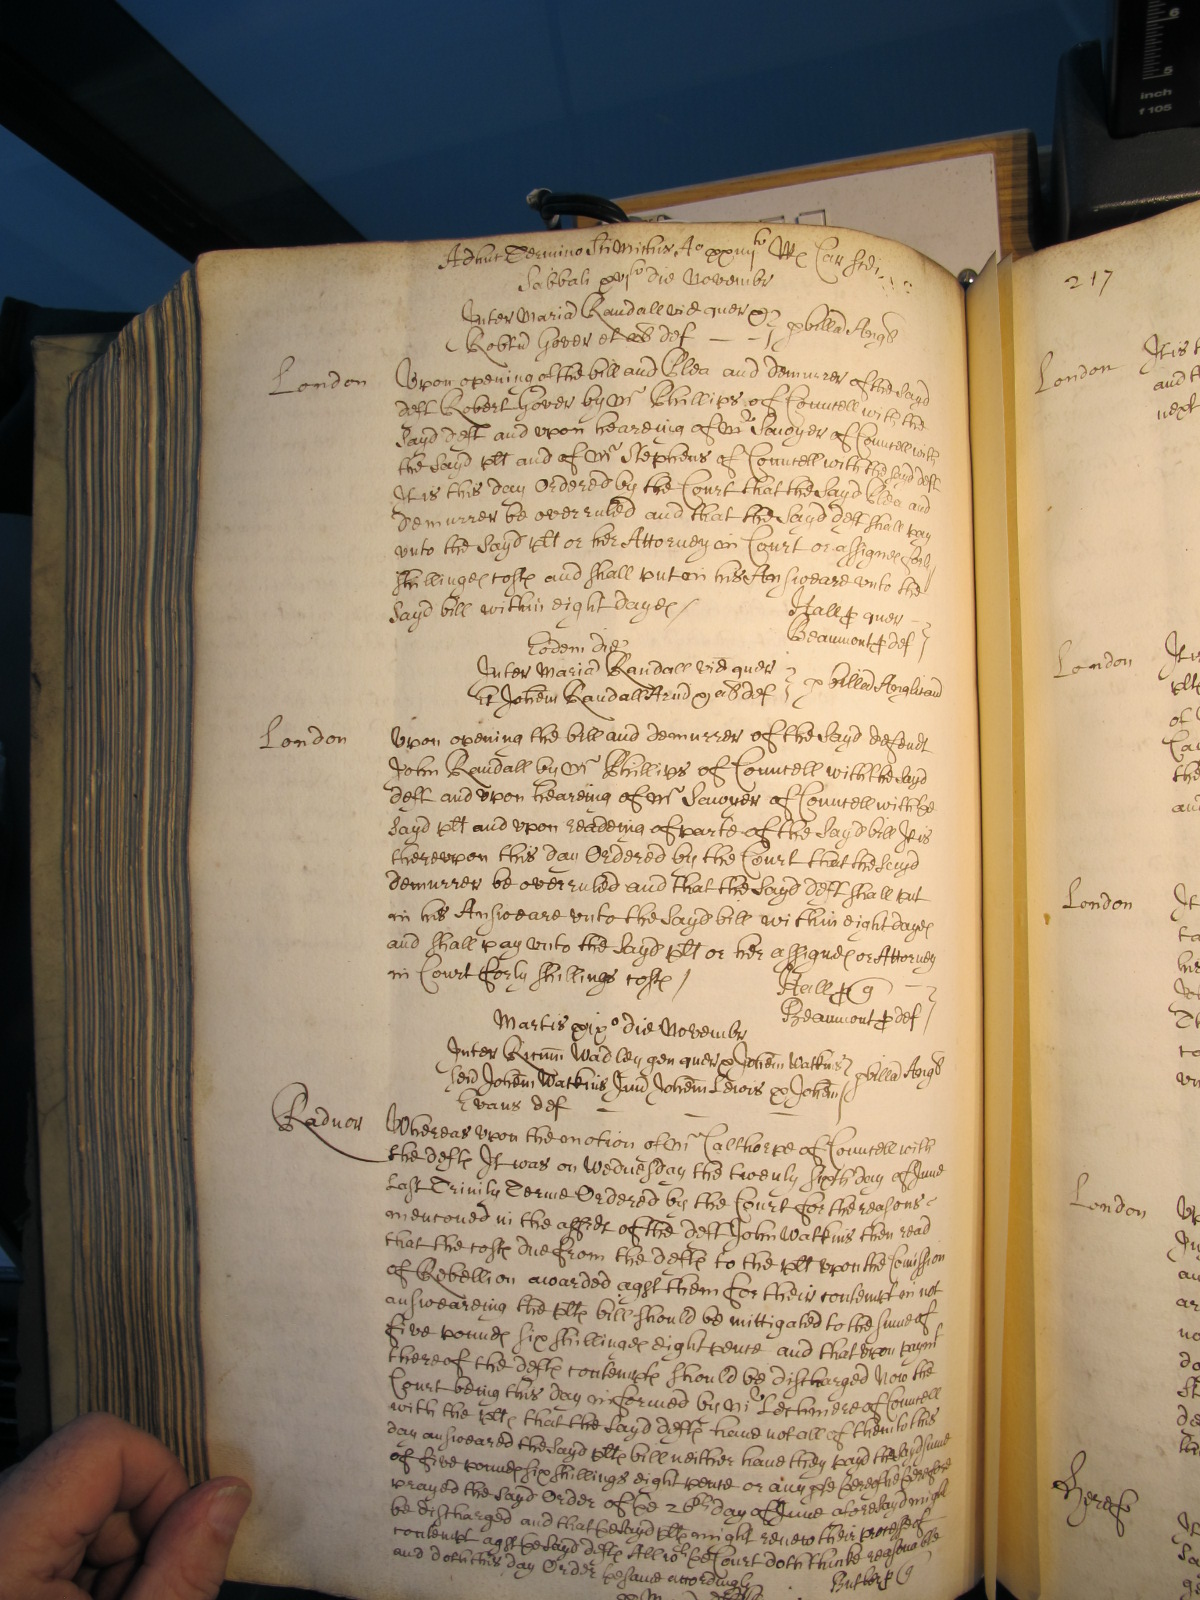 Adhuc Termino Sti Michis Ao xxiiijto Rx Car Scdi
Sabbati xvjto die Novembr
Inter Maria Randall vid quer &
Robtu Gover et als def p billa Angl
London
Upon opening of the bill and Plea and demurrer of the Sayd
deft Robert Gover by Mr Phillips of Councell with the
Sayd deft and upon heareing of Mr Sawyer of Councell with
the Sayd plt and of Mr Stephens of Councell with the Sayd deft
It is this day Ordered by the Court that the Sayd Plea and
Demurrer be overruled and that the Sayd deft shall pay
unto the Sayd plt or her Attorney in Court or assignes
shillinges costs and shall put in his Answeare unto the
Sayd bill within eight dayes /
Hall p quer
Beaumont p def
Eodem die
Inter Maria Randall vid quer
Et Johem Randall & als def p billa Anglicand
London
Upon opening the bill and demurrer of the Sayd defendt
John Randall by Mr Phillips of Councell with the Sayd
deft and upon heareing of Mr Sawyer of Councell with ye
Sayd plt and upon readeing of parte of the Sayd bill It is
thereupon this day Ordered by the Court that the Sayd
demurrer be overruled and that the Sayd deft shall put
in his Answeare unto the Sayd bill within eight dayes
and shall pay unto the Sayd plt or her assignes or Attorney
in Court forty shillings costs /
Hall p q
Beaumont p def
Martis xixo die Novembr
Inter Ricum Wadley gen quer & Johem Watkins
Sen Johem Watkins Jun Johem Lewis & Johem p billa Angl
Evans def
Radnor
Whereas upon the motion of Mr Calthorpe of Councell with
the defts It was on Wednesday the twenty sixth day of June
Last Trinity Terme Ordered by the Court for the reasons
menconed in the affidt of the deft John Watkins then read
that the costs due from the defts to the plt upon the Comission
of Rebellion awarded agst them for their contempt in not
answeareing the plts bill should be mittigated to the sume of
five poundes six shillinges eight pence and that upon paymt
thereof the defts contempts should be discharged Now the
Court being this day informed by Mr Lechmere of Councell
with the plts that the Sayd defts have not all of them to this
day answeared the Sayd plts bill neither have they payd the Sayd sume
of five poundes six shillings eight pence or any pte thereof he therefore
prayed the Sayd Order of ye 26th day of June aforesayd might
be discharged and that ye Sayd plts might renew their processe of
contempt agst ye Sayd defts All wch ye Court doth thinke reasonable
and doth this day Order ye same accordingly
Butler p q
217
London
It is t
and t
next
London
It is
plt
of
the
and
London
It
London
Up
Heref
inch
f 105
6
5